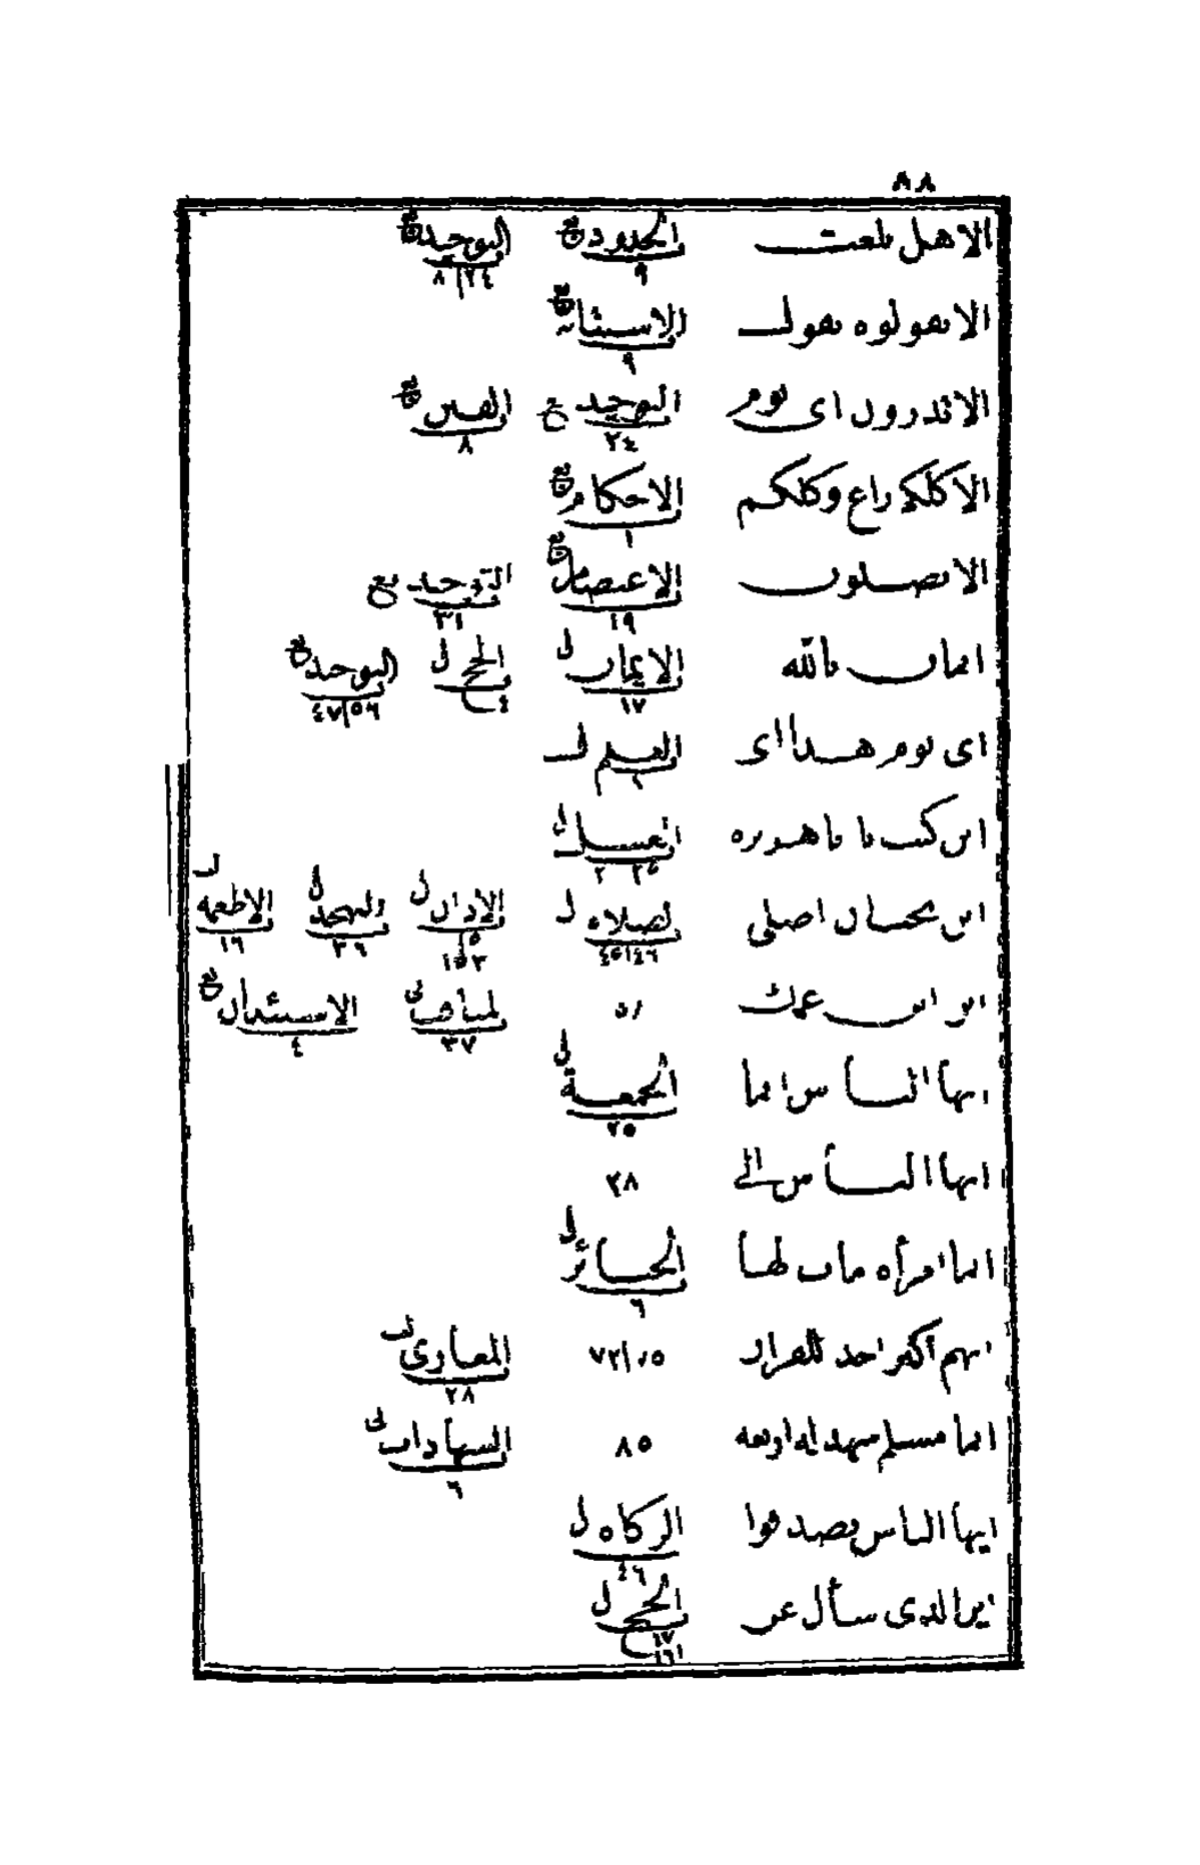 ٨٨
الا هل بلغت الحدود بع ٩ التوحيد بع ٨/٢٤
الا تقولوه يقول الاستتابة بع ٩
الا تدرون اى يوم التوحيد بع ٢٤ الفتن بع ٨
الا كلكم راع وكلكم الاحكام بع ١
الا تصلون الاعتصام بع ١٩ التوحيد بع ٣١
ايمان بالله الايمان ل ١٧ الحج ل ٤ التوحيد بع ٤٧/٥٦
اى يوم هذا اى العلم ل
اين كنت يا با هريره الغسل ل
اين تحب ان اصلى الصلاه ل ٤٥/٤٦ الاذان ل التهجد ل ٣٦ الاطعمه ل ١٦
اين ابن عمك المناقب ل ٣٧ الاستئذان بع ٤
ايها الناس انما الجمعة ل ٢٥
ايها الناس الى ٢٨
ايما امرأه مات لها الجنائز ل ٦
ايهم اكثر اخذ للقران ٧٢/٧٥ المغازى ل ٢٨
ايما مسلم شهد له اربعه ٨٥ الشهادات ل ٦
ايها الناس تصدقوا الزكاه ل ٤٦
اين الذى سأل عن الحج ل ١٧